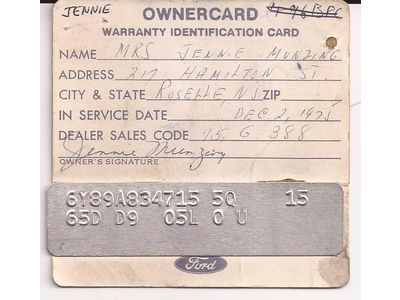 JENNIE
OWNERCARD
WARRANTY IDENTIFICATION CARD
NAME MRS JENNIE MUNZING
ADDRESS 217 HAMILTON ST.
CITY & STATE ROSELLE, N.J. ZIP
IN SERVICE DATE DEC 2, 1975
DEALER SALES CODE 15 G 388
Jennie Munzing
OWNER'S SIGNATURE
6Y89A834715 5Q 15
65D D9 05L 0 U
Ford